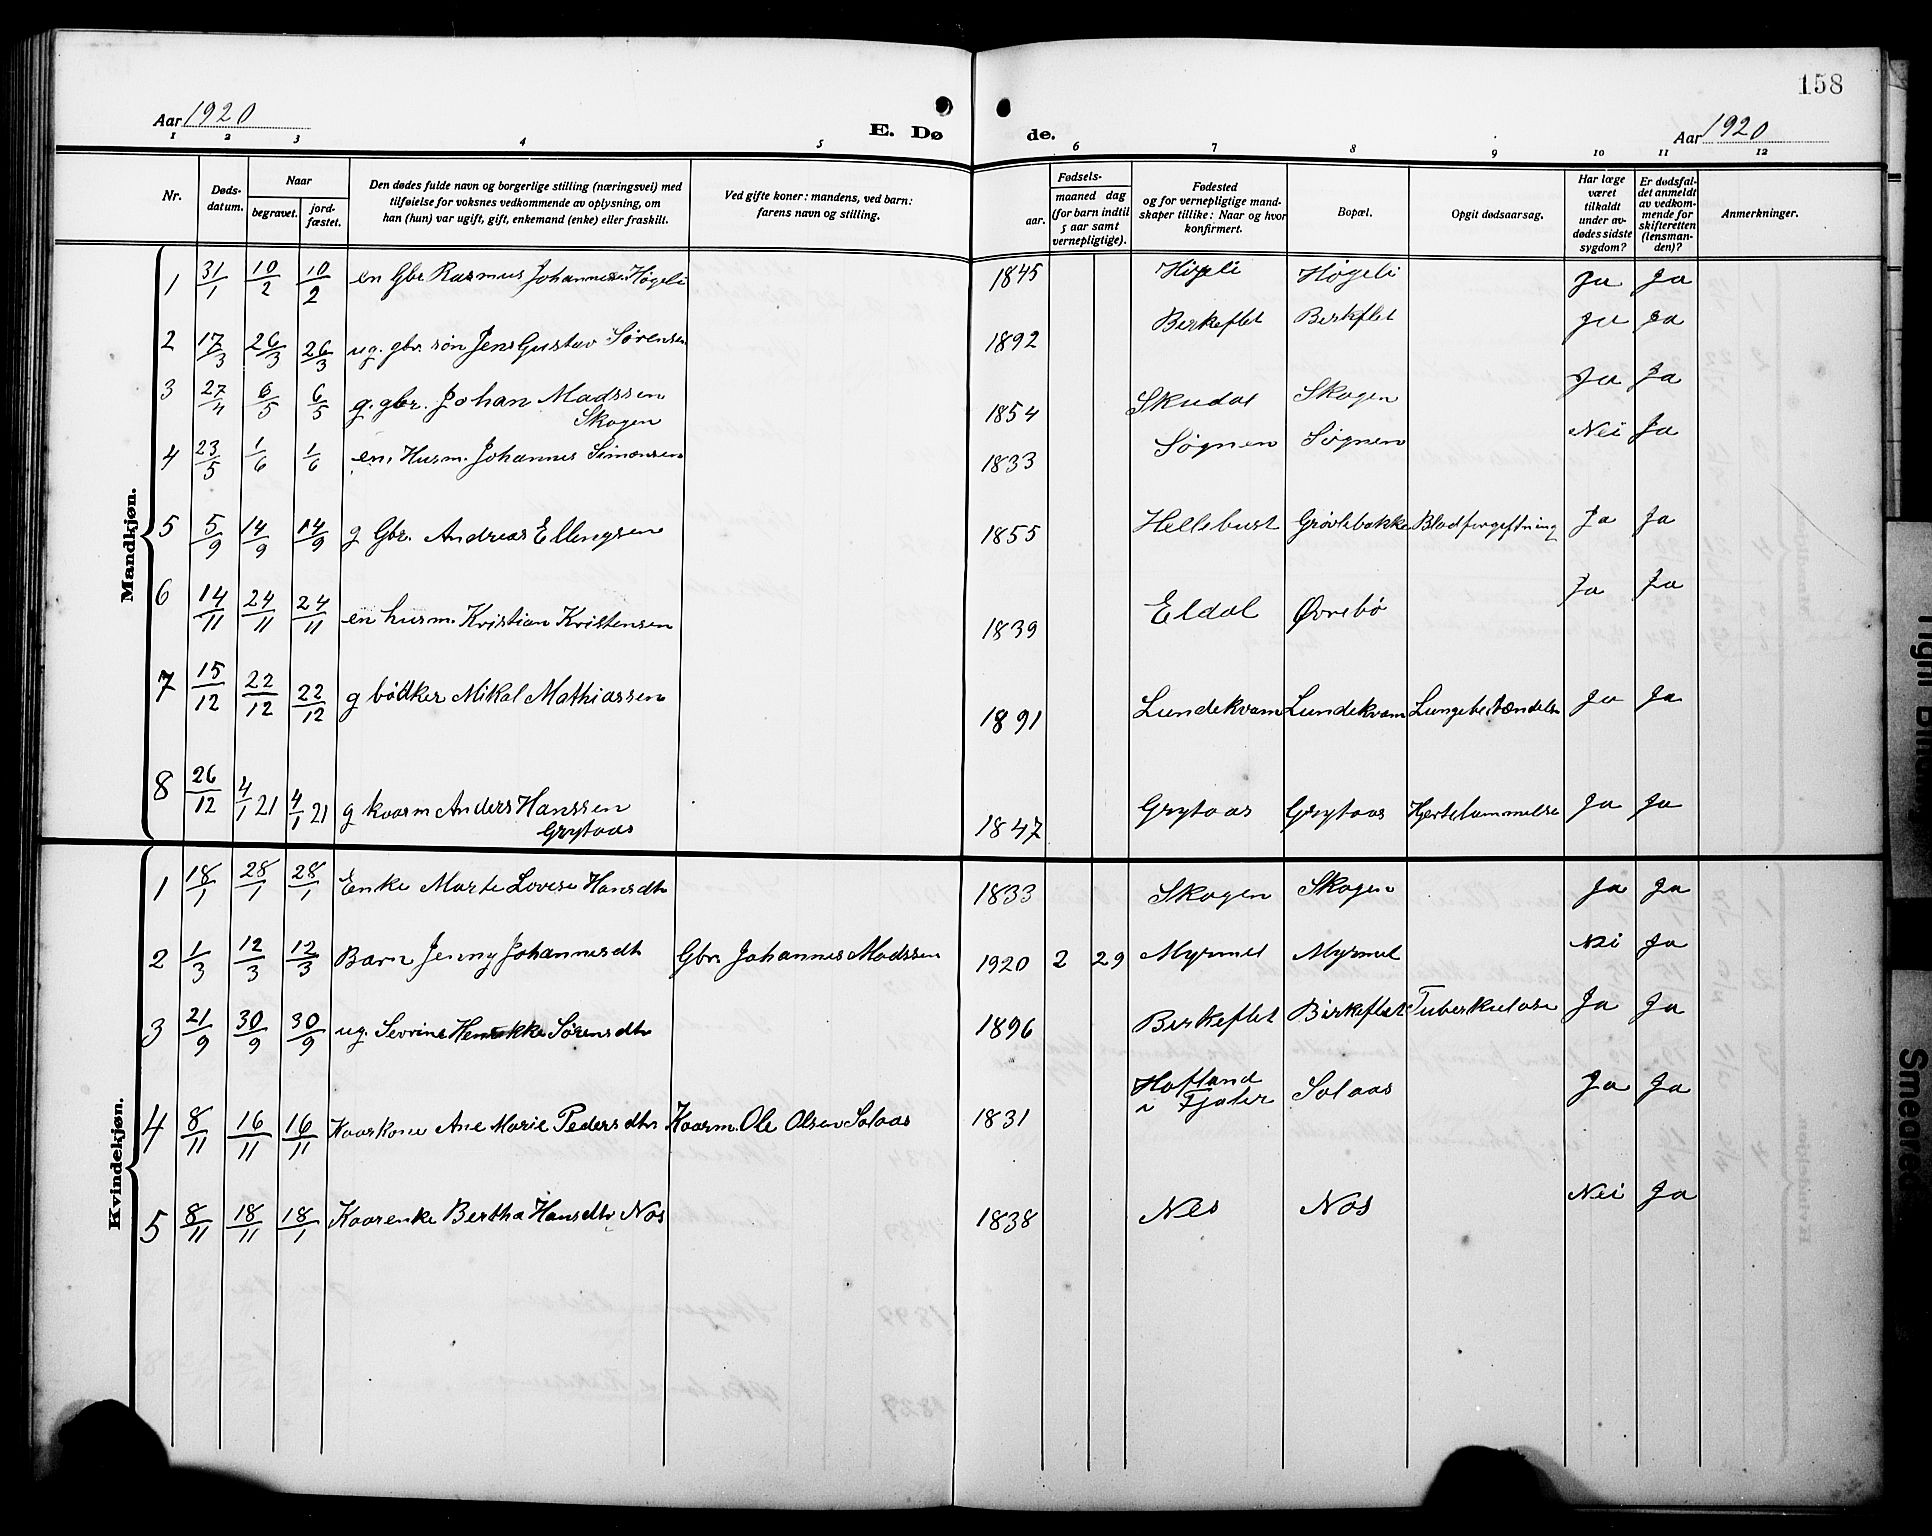 158
Aar 1920
E. Dø de.
Aar 1920
1 2 3 4 5 6 7 8 9 10 11 12
Nr.
Døds-datum.
Naar
begravet.
jord-fæstet.
Den dødes fulde navn og borgerlige stilling (næringsvei) med
tilføielse for voksnes vedkommende av oplysning, om
han (hun) var ugift, gift, enkemand (enke) eller fraskilt.
Ved gifte koner: mandens, ved barn:
farens navn og stilling.
Fødsels-
aar.
maaned dag
(for barn indtil
5 aar samt
vernepligtige).
Fødested
og for vernepligtige mand-
skaper tillike: Naar og hvor
konfirmert.
Bopæl.
Opgit dødsaarsag.
Har læge
været
tilkaldt
under av-
dødes sidste
sygdom?
Er dødsfal-
det anmeldt
av vedkom-
mende for
skifteretten
(lensman-
den)?
Anmerkninger.
Mandkjøn.
1 31/1 10/2 10/2 en Gbr Rasmus Johannessen Høgeli 1845 Högeli Høgeli Ja Ja
2 17/3 26/3 26/3 ug. gbr. søn Jens Gustav Sørensen 1892 Birkeflet Birkflet Ja Ja
3 27/4 6/5 6/5 g. gbr. Johan Madssen
Skogen 1854 Skudal Skogen Ja Ja
4 23/5 1/6 1/6 en. Husm. Johannes Simonsen 1833 Søgnen Søgnen Nei Ja
5 5/9 14/9 14/9 g Gbr. Andreas Ellingsen 1855 Hellebust Grövlebakke Blodforgiftning Ja Ja
6 14/11 24/11 24/11 en husm. Kristian Kristensen 1839 Eldal Øvrebø Ja Ja
7 15/12 22/12 22/12 g bödker Mikal Mathiassen 1891 Lundekvam Lundekvam Lungebetændelse Ja Ja
8 26/12 4/1 21 4/1 21 g kaarm Anders Hanssen
Grytaas 1847 Grytaas Grytaas Hjertelammelse Ja Ja
Kvindekjøn.
1 18/1 28/1 28/1 Enke Marte Lovise Hansdtr 1833 Skogen Skogen Ja Ja
2 1/3 12/3 12/3 Barn Jenny Johannesdtr Gbr. Johannes Madssen 1920 2 29 Myrmel Myrmel Nei Ja
3 21/9 30/9 30/9 ug. Sevrine Henrikke Sørensdtr 1896 Birkeflet Birkeflet Tuberkulose Ja Ja
4 8/11 16/11 16/11 Kaarkone Ane Marie Pedersdtr Kaarm. Ole Olsen Solaas 1831 Hofland
i Fjaler Solaas Ja Ja
5 8/11 18/11 18/1 Kaarenke Bertha Hansdtr Nes 1838 Nes Nes Nei Ja
Tight Binding
Smeared